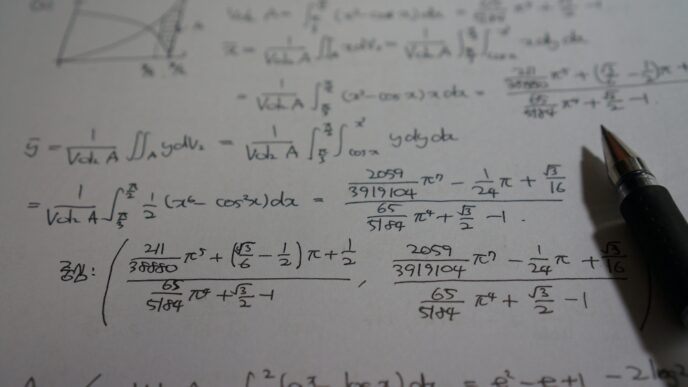 Vol₂ A = ∫ (x³ − cos x)dx = 65/5184 π⁴ + √3/2 − 1
x̄ = 1/Vol₂ A ∬_A x dV₂ = 1/Vol₂ A ∫_{π/3}^{π/2} ∫_{cos x}^{x³} x dy dx
= 1/Vol₂ A ∫_{π/3}^{π/2} (x³ − cos x) x dx = (211/38880 π⁵ + (√3/6 − 1/2)π + / (65/5184 π⁴ + √3/2 − 1)
ȳ = 1/Vol₂ A ∬_A y dV₂ = 1/Vol₂ A ∫_{π/3}^{π/2} ∫_{cos x}^{x³} y dy dx
= 1/Vol₂ A ∫_{π/3}^{π/2} 1/2 (x⁶ − cos²x) dx = (2059/3919104 π⁷ − 1/24 π + √3/16) / (65/5184 π⁴ + √3/2 − 1) .
중심: ( (211/38880 π⁵ + (√3/6 − 1/2)π + 1/2) / (65/5184 π⁴ + √3/2 − 1) , (2059/3919104 π⁷ − 1/24 π + √3/16) / (65/5184 π⁴ + √3/2 − 1) )
= e² − e + 1 − 2 log 2